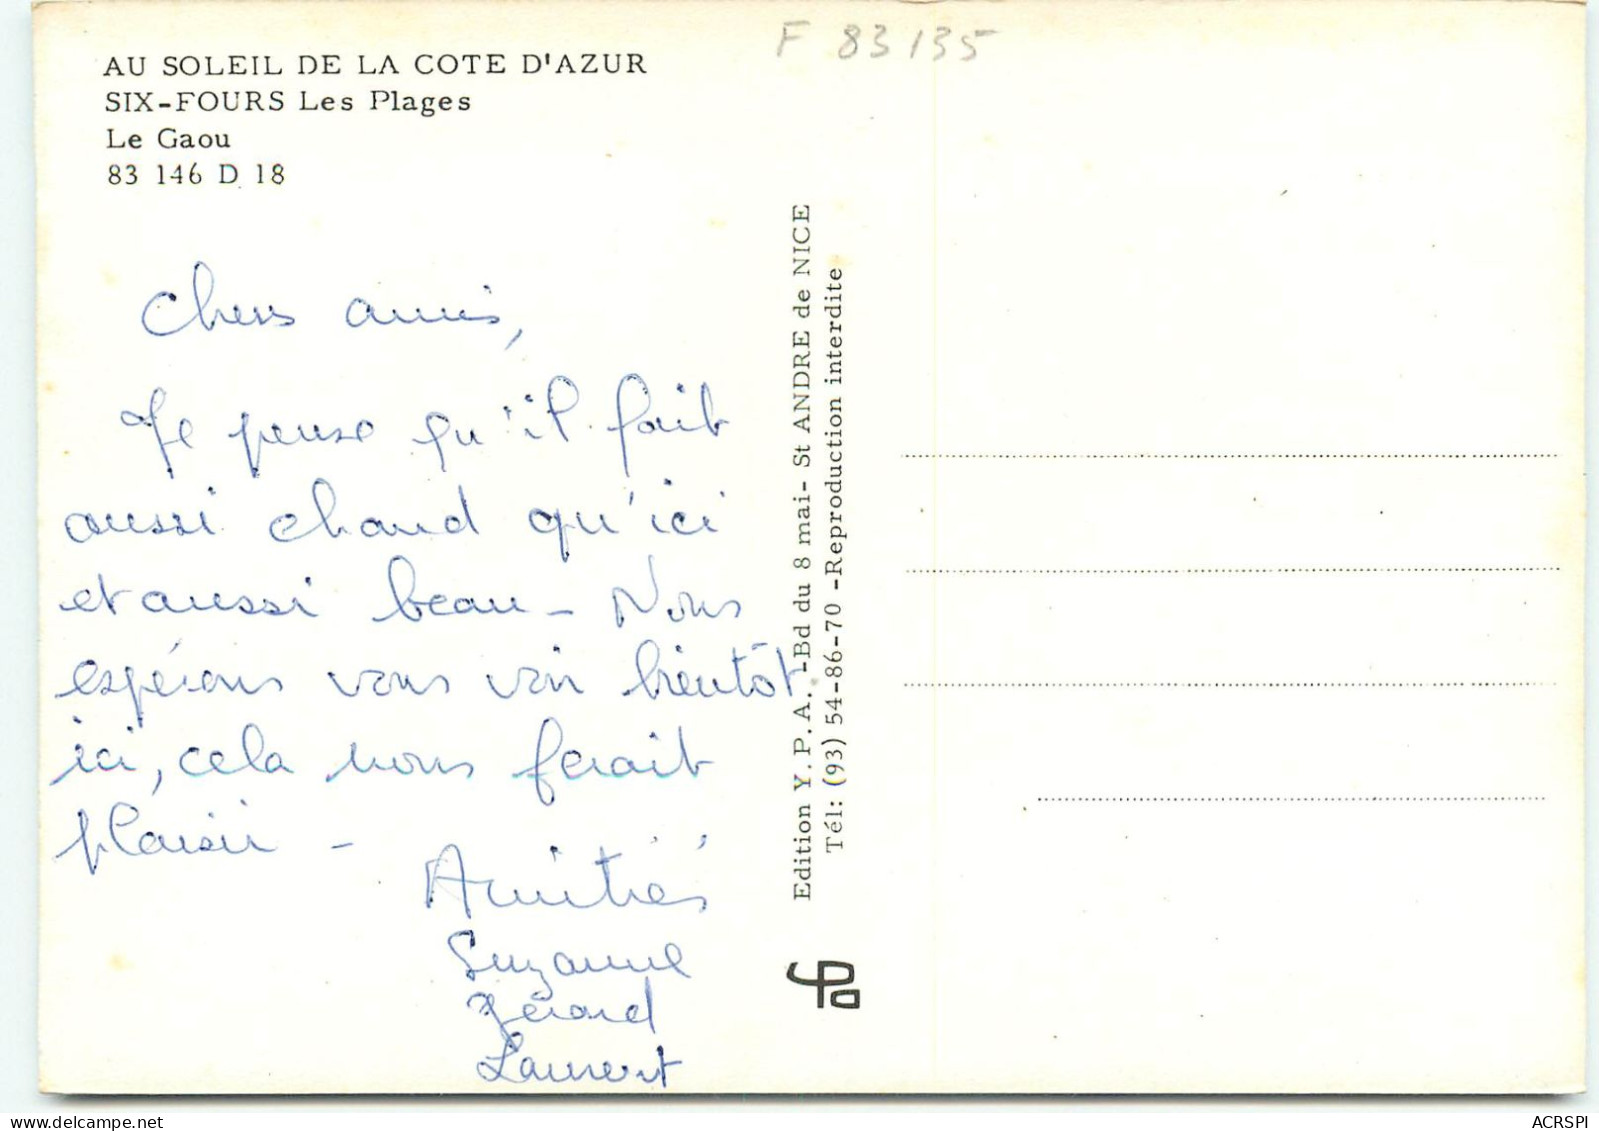 F 83135
AU SOLEIL DE LA COTE D'AZUR
SIX-FOURS Les Plages
Le Gaou
83 146 D 18
Chers amis,
Je pense qu'il fait
aussi chaud qu'ici
et aussi beau - Nous
espérons vous voir bientôt
ici, cela nous ferait
plaisir -
Amitiés
Suzanne
Gérard
Laurent
Edition Y.P.A. -Bd du 8 mai- St ANDRE de NICE
Tél: (93) 54-86-70 -Reproduction interdite
ypa
ACRSPI